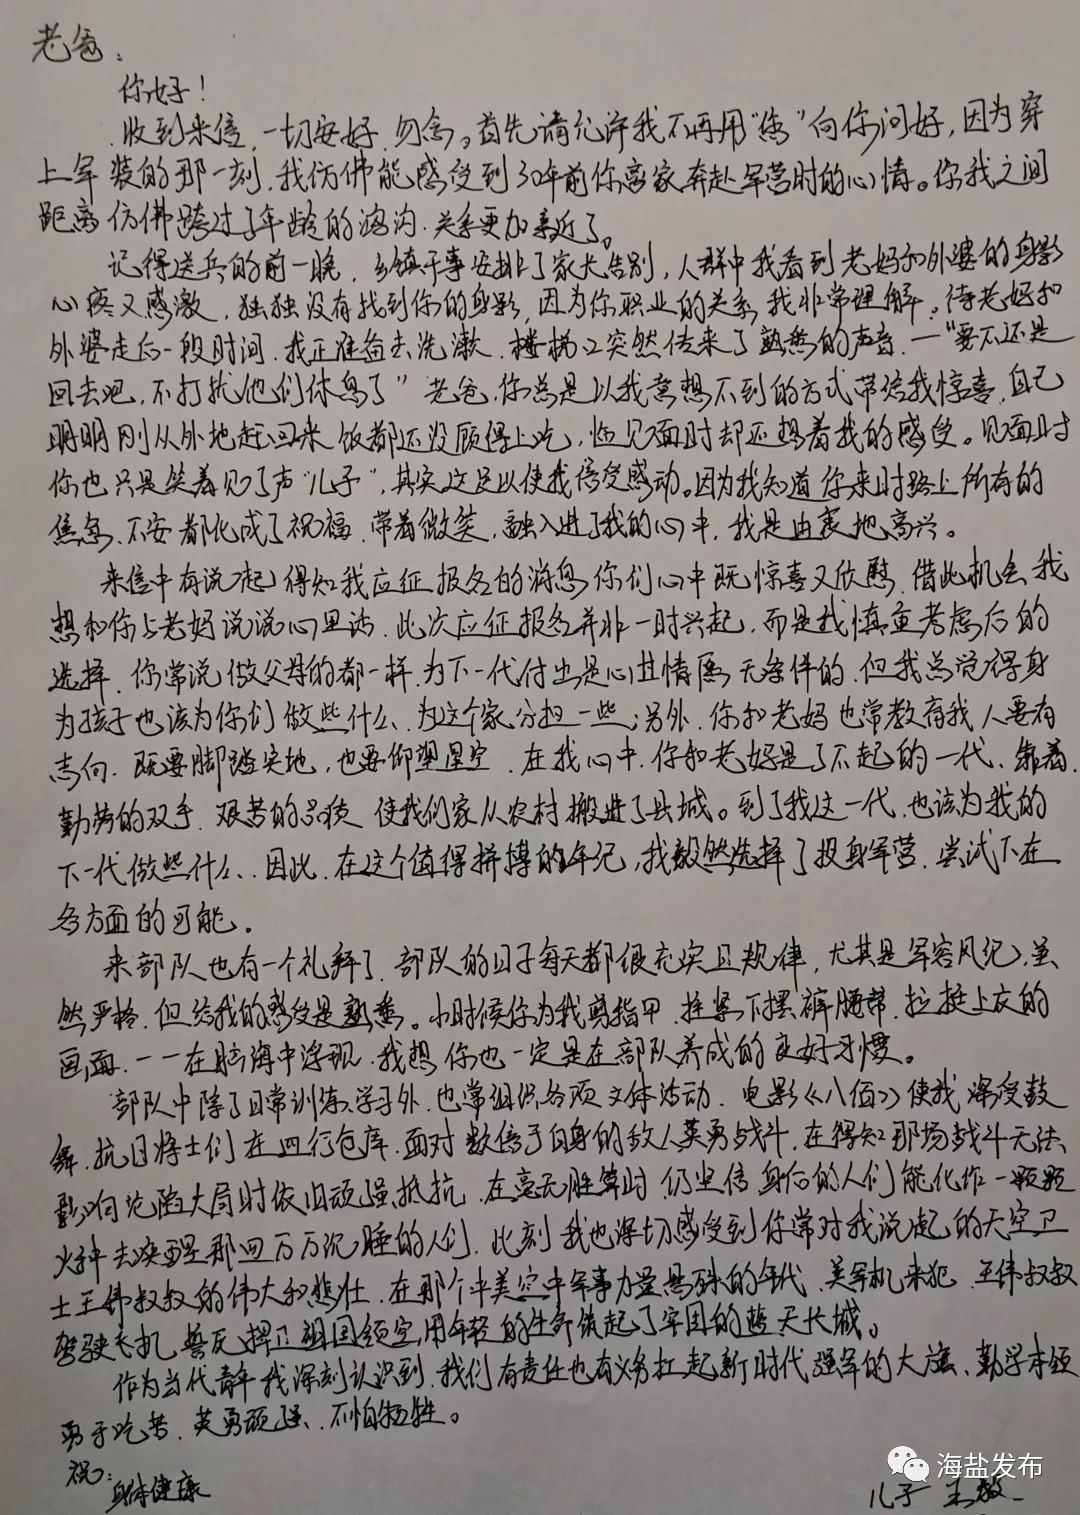 老爸：
你好！
收到来信，一切安好，勿念。首先请允许我不再用“您”向你问好，因为穿
上军装的那一刻，我仿佛能感受到30年前你离家奔赴军营时的心情。你我之间
距离仿佛跨过了年龄的鸿沟，关系更加亲近了。
记得送兵的前一晚，乡镇干事安排了家长告别，人群中我看到老妈和外婆的身影
心疼又感激，独独没有找到你的身影，因为你职业的关系，我非常理解。待老妈和
外婆走后一段时间，我正准备去洗漱，楼梯口突然传来了熟悉的声音，一“要不还是
回去吧，不打扰他们休息了”老爸，你总是以我意想不到的方式带给我惊喜，自己
明明刚从外地赶回来饭都还没顾得上吃，临见面时却还想着我的感受。见面时
你也只是笑着见了声“儿子”，其实这足以使我倍受感动。因为我知道你来时路上所有的
焦急、不安都化成了祝福，带着微笑，融入进了我的心中，我是由衷地高兴。
来信中有说起得知我应征报名的消息你们心中既惊喜又欣慰，借此机会我
想和你与老妈说说心里话，此次应征报名并非一时兴起，而是我慎重考虑后的
选择，你常说做父母的都一样，为下一代付出是心甘情愿无条件的，但我总觉得身
为孩子也该为你们做些什么、为这个家分担一些；另外，你和老妈也常教育我人要有
志向，既要脚踏实地，也要仰望星空，在我心中，你和老妈是了不起的一代、靠着
勤劳的双手，艰苦的品质，使我们家从农村搬进了县城。到了我这一代，也该为我的
下一代做些什么、因此，在这个值得拼搏的年纪，我毅然选择了投身军营，尝试下在
各方面的可能。
来部队也有一个礼拜了，部队的日子每天都很充实且规律，尤其是军容风纪，虽
然严格，但给我的感受是熟悉。小时候你为我剪指甲，拴紧下摆裤腰带，拉挺上衣的
画面，一一在脑海中浮现，我想你也一定是在部队养成的良好习惯。
部队中除了日常训练、学习外，也常组织各项文体活动，电影《八佰》使我深受鼓
舞，抗日将士们在四行仓库，面对数倍于自身的敌人英勇战斗，在得知那场战斗无法
影响沦陷大局时依旧顽强抵抗，在毫无胜算时，仍坚信身后的人们能化作一颗颗
火种去唤醒那四万万沉睡的人们，此刻，我也深切感受到你常对我说起的天空卫
士王伟叔叔的伟大和悲壮，在那个中美空中军事力量悬殊的年代，美军机来犯，王伟叔叔
驾驶飞机，誓死捍卫祖国领空，用年轻的生命筑起了牢固的蓝天长城。
作为当代青年，我深刻认识到，我们有责任也有义务扛起新时代强军的大旗，勤学本领
勇于吃苦，英勇顽强、不怕牺牲。
祝：
身体健康
儿子 王毅
海盐发布